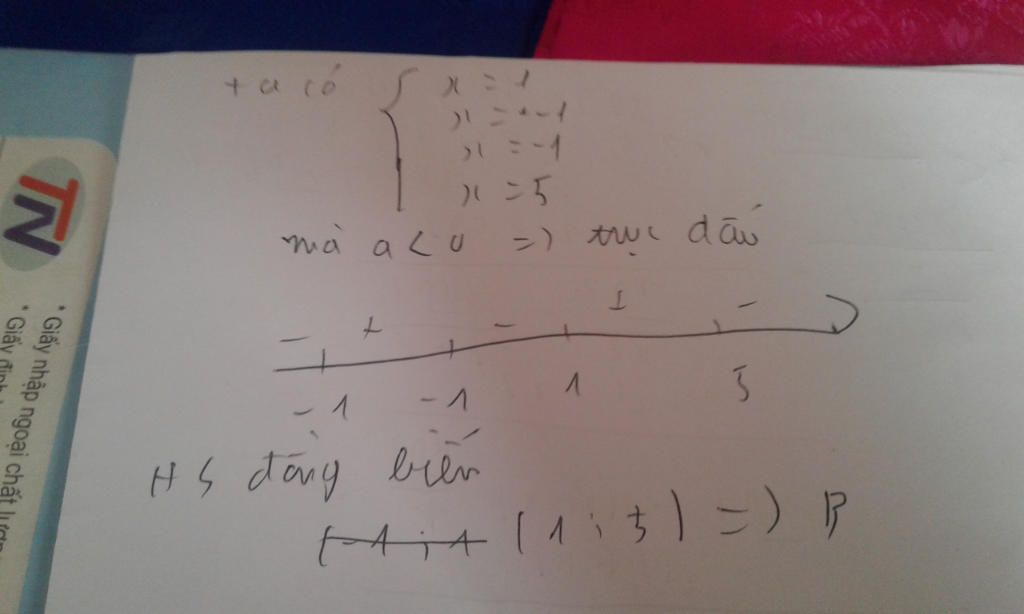 + a có { x = 1
x = -1
x = -1
x = 5
mà a < 0 => trục dấu
- + - + -
-1 -1 1 5
HS đồng biến
(-1; 1 (1; 5) => B
TN
• Giấy nhập ngoại chất lượn
• Giấy định